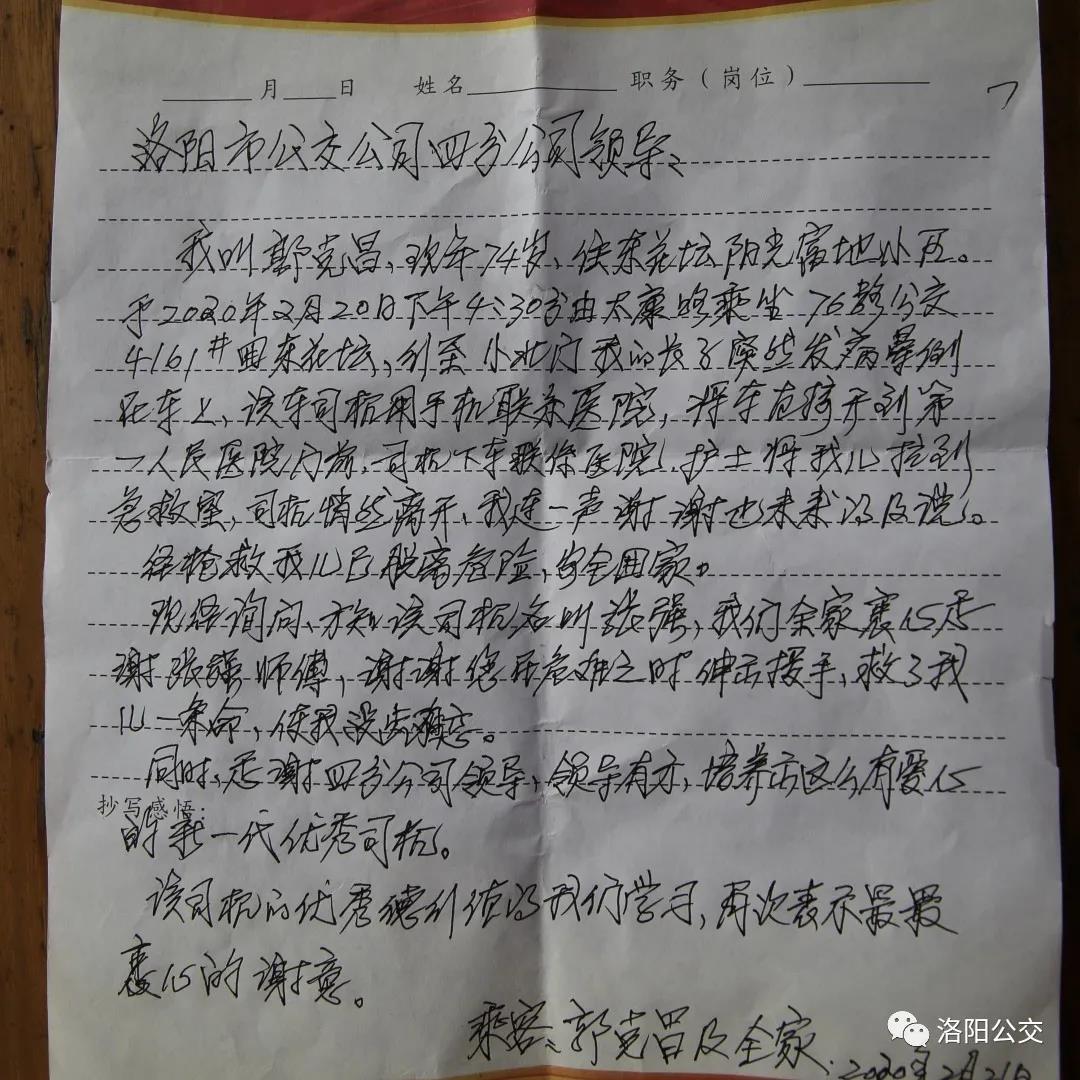 ______月____日 姓名__________职务（岗位）________
洛阳市公交公司四分公司领导：
我叫郭克昌，现年74岁，住东花坛阳光富地小区。
于2020年2月20日下午4:30分由太康路乘坐76路公交
4161#回东花坛，行至小北门我的孩子突然发病晕倒
在车上，该车司机用手机联系医院，将车直接开到第
一人民医院门前，司机下车联系医院，护士将我儿拉到
急救室，司机悄然离开，我连一声谢谢也未来得及说。
经抢救我儿已脱离危险，安全回家。
现经询问，才知该司机名叫张强，我们全家衷心感
谢张强师傅，谢谢您在危难之时伸出援手，救了我
儿一条命，使我没齿难忘。
同时，感谢四分公司领导，领导有方，培养出这么有爱心
抄写感悟：
的新一代优秀司机。
该司机的优秀德行值得我们学习，再次表示最最
衷心的谢意。
乘客：郭克昌及全家
2020年2月21日
洛阳公交